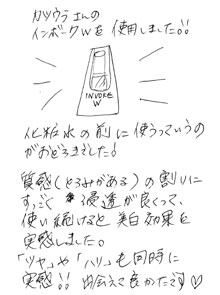 カツウラさんの
インボークWを使用しました!!
INVOKE
W
化粧水の前に使うっていうの
がおどろきでした!
質感(とろみがある)の割りに
すっごく浸透が良くって、
使い続けると美白効果を
実感しました。
「ツヤ」や「ハリ」も同時に
実感!! 出会えて良かったです♡